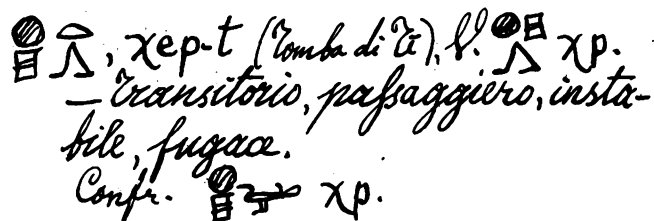 𓐍𓊪𓏏𓂻, χep-t (Tomba di Ti), V. 𓐍𓊪𓂻 χp.
— Transitorio, paſsaggiero, insta-
bile, fugace.
Confr. 𓐍𓊪 χp.